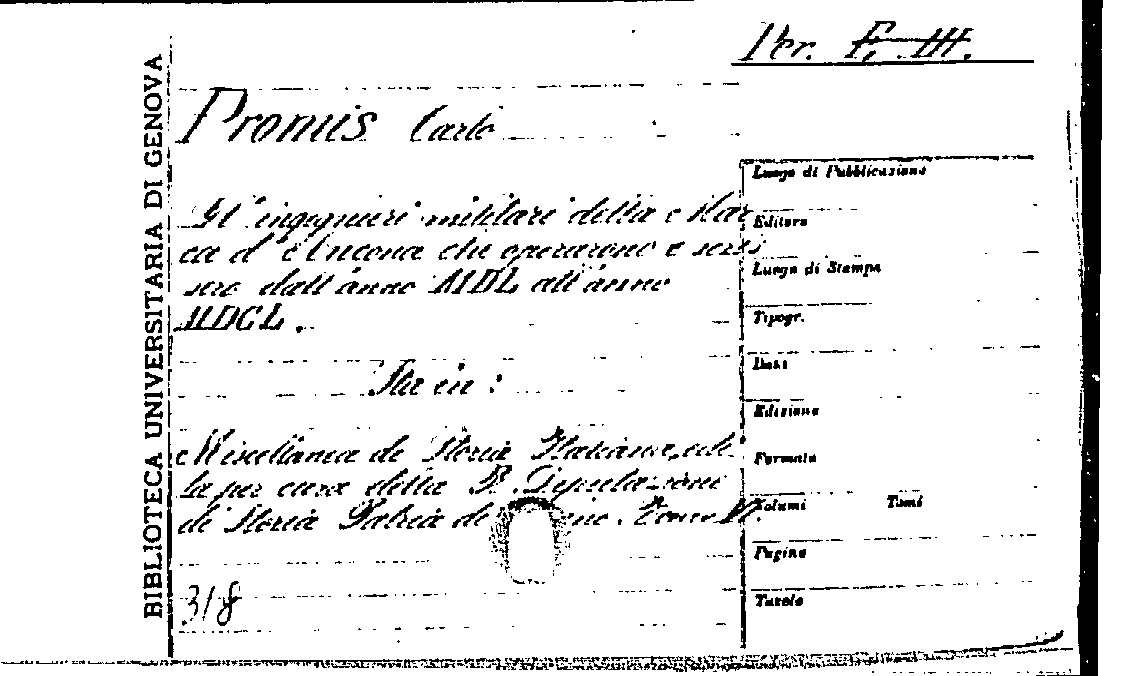 Per. F. III.
BIBLIOTECA UNIVERSITARIA DI GENOVA
Promis Carlo
Gl'ingegnieri militari della Mar
ca d'Ancona che operarono e scris
sero dall'anno MDL all'anno
MDCL.
Sta in:
Miscellanea di Storia Italiana, edi
ta per cura della R. Deputazione
di Storia Patria di Tomo
318
Luogo di Pubblicazione
Editore
Luogo di Stampa
Tipogr.
Data
Edizione
Formato
Volumi Tomi
Pagine
Tavole